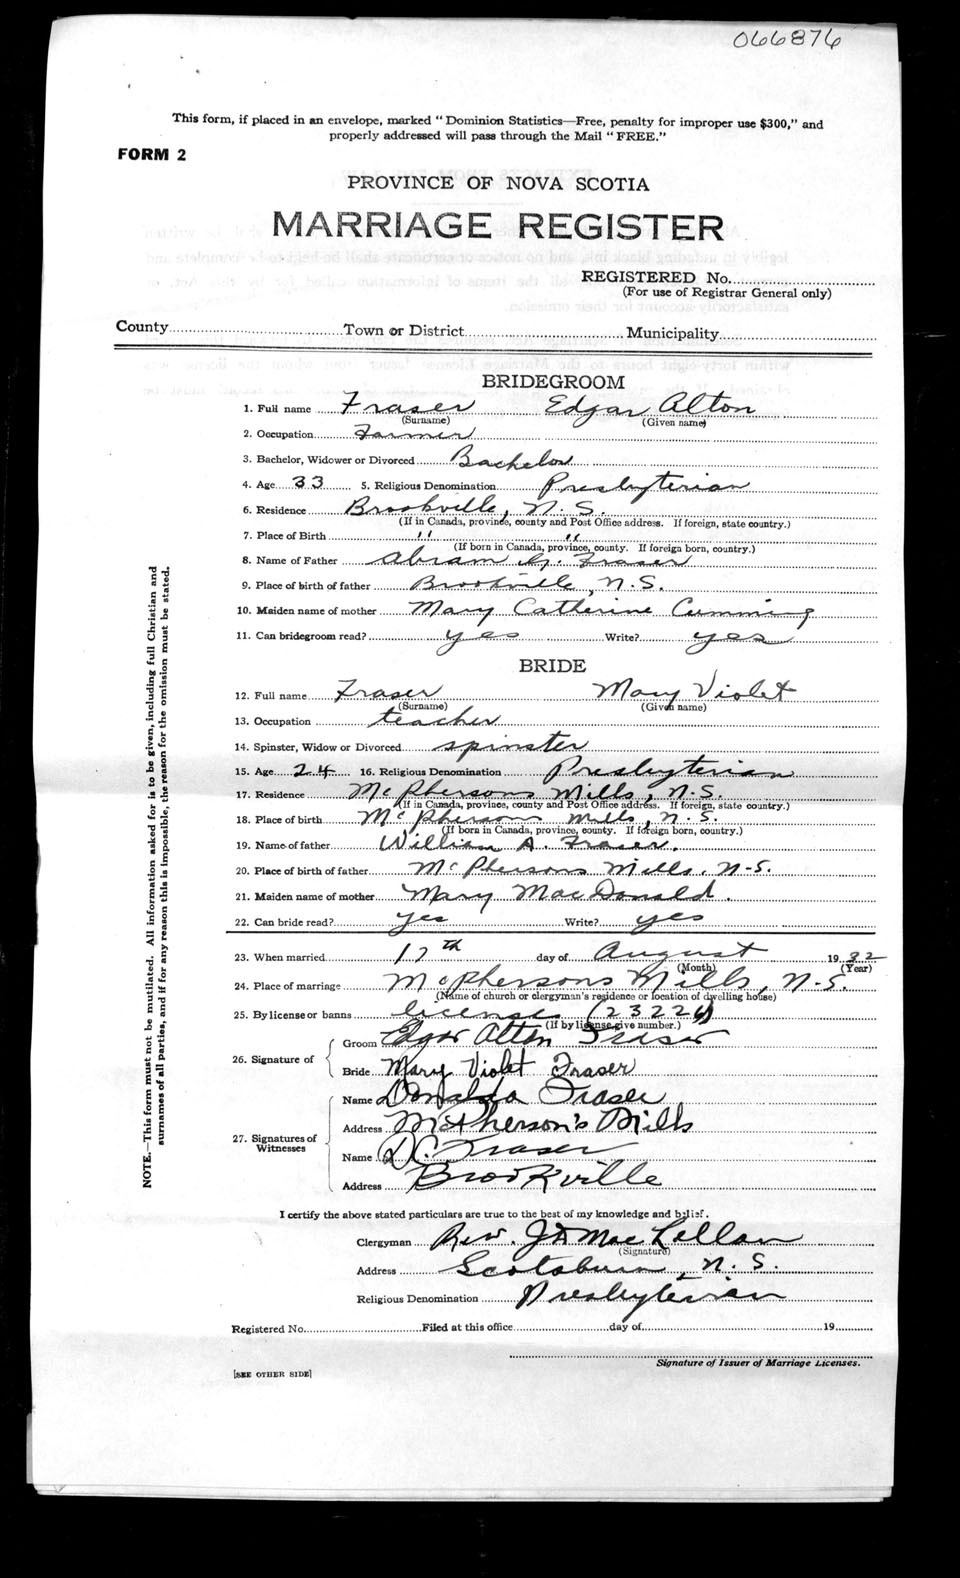 066876
This form, if placed in an envelope, marked "Dominion Statistics—Free, penalty for improper use $300," and
properly addressed will pass through the Mail "FREE."
FORM 2
PROVINCE OF NOVA SCOTIA
MARRIAGE REGISTER
REGISTERED No.
(For use of Registrar General only)
County Town or District Municipality
BRIDEGROOM
1. Full name Fraser Edgar Alton
(Surname) (Given name)
2. Occupation Farmer
3. Bachelor, Widower or Divorced Bachelor
4. Age 33 5. Religious Denomination Presbyterian
6. Residence Brookville, N.S.
(If in Canada, province, county and Post Office address. If foreign, state country.)
7. Place of Birth " "
(If born in Canada, province, county. If foreign born, country.)
8. Name of Father Abram G. Fraser
9. Place of birth of father Brookville, N.S.
10. Maiden name of mother Mary Catherine Cumming
11. Can bridegroom read? yes Write? yes
BRIDE
12. Full name Fraser Mary Violet
(Surname) (Given name)
13. Occupation teacher
14. Spinster, Widow or Divorced spinster
15. Age 24 16. Religious Denomination Presbyterian
17. Residence McPhersons Mills, N.S.
(If in Canada, province, county and Post Office address. If foreign, state country.)
18. Place of birth McPhersons Mills, N.S.
(If born in Canada, province, county. If foreign born, country.)
19. Name of father William A. Fraser.
20. Place of birth of father McPhersons Mills. N-S.
21. Maiden name of mother Mary MacDonald.
22. Can bride read? yes Write? yes
23. When married 17th day of August 1932
(Month) (Year)
24. Place of marriage McPhersons Mills, N-S.
(Name of church or clergyman's residence or location of dwelling house)
25. By license or banns license (23224)
(If by license give number.)
Groom Edgar Alton Fraser
26. Signature of
Bride Mary Violet Fraser
Name Donalda Fraser
Address McPherson's Mills
27. Signatures of Witnesses
Name D.C. Fraser
Address Brookville
I certify the above stated particulars are true to the best of my knowledge and belief.
Clergyman Rev. J D MacLellan
(Signature)
Address Scotsburn, N.S.
Religious Denomination Presbyterian
Registered No. Filed at this office day of 19
Signature of Issuer of Marriage Licenses.
[SEE OTHER SIDE]
NOTE.—This form must not be mutilated. All information asked for is to be given, including full Christian and
surnames of all parties, and if for any reason this is impossible, the reason for the omission must be stated.